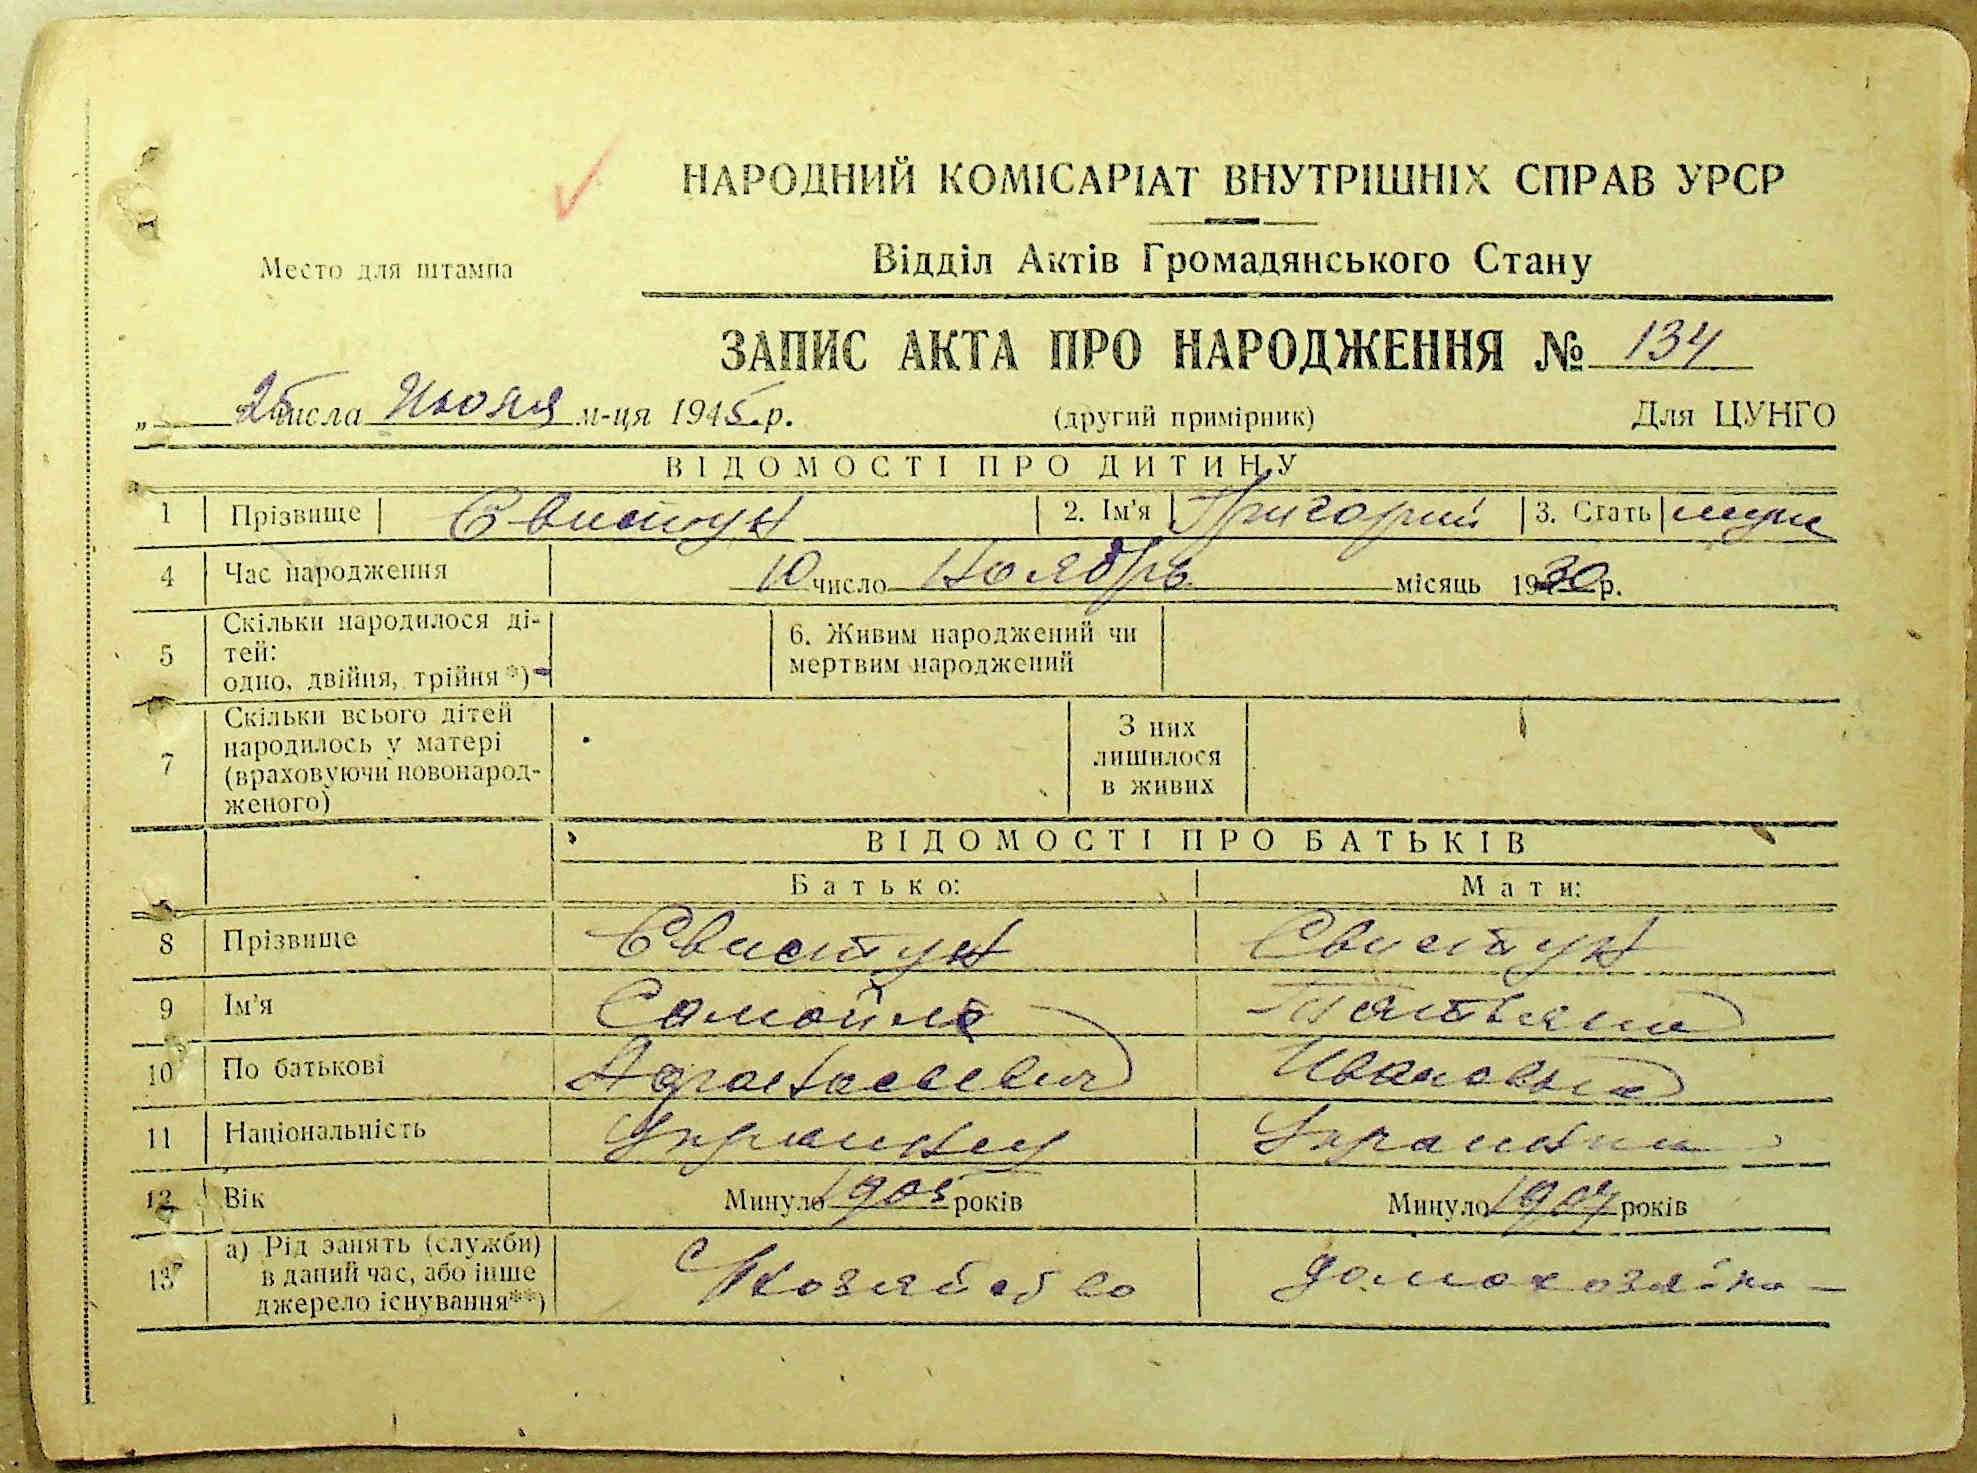 НАРОДНИЙ КОМІСАРІАТ ВНУТРІШНІХ СПРАВ УРСР
Место для штампа
Відділ Актів Громадянського Стану
ЗАПИС АКТА ПРО НАРОДЖЕННЯ № 134
„ 25 числа Июня м-ця 1945 р. (другий примірник) Для ЦУНГО
ВІДОМОСТІ ПРО ДИТИНУ
1 Прізвище Свистун 2. Ім'я Григорий 3. Стать муж
4 Час народження 10 число Ноябрь місяць 1930 р.
5 Скільки народилося ді-
тей:
одно, двійня, трійня*)
6. Живим народжений чи
мертвим народжений
7 Скільки всього дітей
народилось у матері
(враховуючи новонарод-
женого)
З них
лишилося
в живих
ВІДОМОСТІ ПРО БАТЬКІВ
Батько: Мати:
8 Прізвище Свистун Свистун
9 Ім'я Самойло Татьяна
10 По батькові Афанасьевич Ивановна
11 Національність Украинец Украинка
12 Вік Минуло 1905 років Минуло 1907 років
13 а) Рід занять (служби)
в даний час, або інше
джерело існування**)
домохозяйка